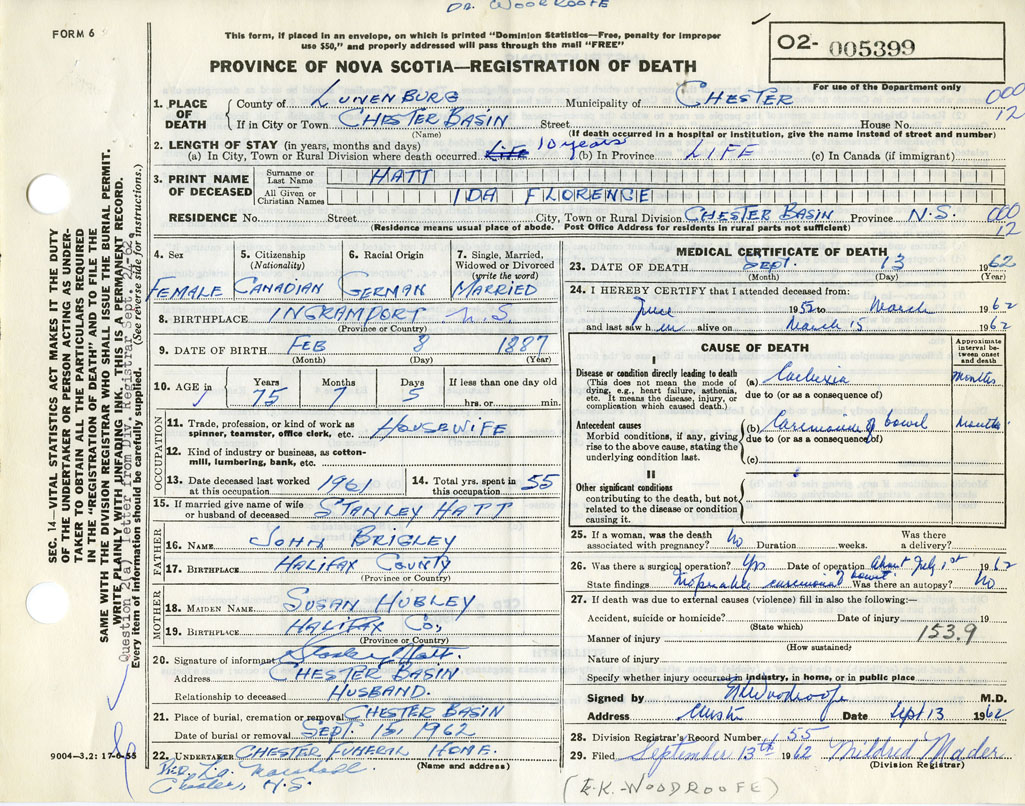 DR. WOODROOFE
FORM 6
This form, if placed in an envelope, on which is printed "Dominion Statistics—Free, penalty for improper
use $50," and properly addressed will pass through the mail "FREE"
O2- 005399
PROVINCE OF NOVA SCOTIA—REGISTRATION OF DEATH
For use of the Department only
1. PLACE OF DEATH County of LUNENBURG Municipality of CHESTER 000
If in City or Town CHESTER BASIN Street House No. 12
(Name) (If death occurred in a hospital or institution, give the name instead of street and number)
2. LENGTH OF STAY (in years, months and days)
(a) In City, Town or Rural Division where death occurred Life 10 years (b) In Province LIFE (c) In Canada (if immigrant)
3. PRINT NAME OF DECEASED Surname or Last Name HATT
All Given or Christian Names IDA FLORENCE
RESIDENCE No. Street City, Town or Rural Division CHESTER BASIN Province N.S. 000
(Residence means usual place of abode. Post Office Address for residents in rural parts not sufficient) 12
4. Sex 5. Citizenship (Nationality) 6. Racial Origin 7. Single, Married, Widowed or Divorced (write the word)
FEMALE CANADIAN GERMAN MARRIED
8. BIRTHPLACE INGRAMPORT N.S.
(Province or Country)
9. DATE OF BIRTH FEB 8 1887
(Month) (Day) (Year)
10. AGE in Years Months Days If less than one day old
75 7 5 hrs. or min.
OCCUPATION
11. Trade, profession, or kind of work as
spinner, teamster, office clerk, etc. HOUSEWIFE
12. Kind of industry or business, as cotton-
mill, lumbering, bank, etc.
13. Date deceased last worked at this occupation 1961 14. Total yrs. spent in this occupation 55
15. If married give name of wife
or husband of deceased STANLEY HATT
FATHER
16. NAME JOHN BRIGLEY
17. BIRTHPLACE HALIFAX COUNTY
(Province or Country)
MOTHER
18. MAIDEN NAME SUSAN HUBLEY
19. BIRTHPLACE HALIFAX CO,
(Province or Country)
20. Signature of informant Stanley Hatt.
Address CHESTER BASIN
Relationship to deceased HUSBAND.
21. Place of burial, cremation or removal CHESTER BASIN
Date of burial or removal SEPT. 15, 1962
22. UNDERTAKER CHESTER FUNERAL HOME.
(Name and address)
Marshall
Chester, N.S.
MEDICAL CERTIFICATE OF DEATH
23. DATE OF DEATH Sept. 13 1962
(Month) (Day) (Year)
24. I HEREBY CERTIFY that I attended deceased from:
June 1952 to March 1962
and last saw h er alive on March 15 1962
CAUSE OF DEATH
Approximate interval between onset and death
I
Disease or condition directly leading to death
(This does not mean the mode of
dying, e.g., heart failure, asthenia,
etc. It means the disease, injury, or
complication which caused death.)
(a) Cachexia months
due to (or as a consequence of)
Antecedent causes
Morbid conditions, if any, giving
rise to the above cause, stating the
underlying condition last.
(b) Carcinoma of bowel months
due to (or as a consequence of)
(c)
II
Other significant conditions
contributing to the death, but not
related to the disease or condition
causing it.
25. If a woman, was the death
associated with pregnancy? No Duration weeks. Was there a delivery?
26. Was there a surgical operation? Yes Date of operation About July 1st 1962
State findings Inoperable carcinoma of bowel Was there an autopsy? No
27. If death was due to external causes (violence) fill in also the following:—
Accident, suicide or homicide? Date of injury 19
(State which)
Manner of injury 153.9
(How sustained)
Nature of injury
Specify whether injury occurred in industry, in home, or in public place
Signed by EKWoodroofe M.D.
Address Chester Date Sept 13 1962
28. Division Registrar's Record Number 55
29. Filed September 13th 1962 Mildred Mader
(Division Registrar)
(E.K. WOODROOFE)
SEC. 14—VITAL STATISTICS ACT MAKES IT THE DUTY
OF THE UNDERTAKER OR PERSON ACTING AS UNDER-
TAKER TO OBTAIN ALL THE PARTICULARS REQUIRED
IN THE "REGISTRATION OF DEATH" AND TO FILE THE
SAME WITH THE DIVISION REGISTRAR WHO SHALL ISSUE THE BURIAL PERMIT.
WRITE PLAINLY WITH UNFADING INK. THIS IS A PERMANENT RECORD.
Question 2a, letter from Div. Registrar Sept.
Every item of information should be carefully supplied. (See reverse side for instructions.)
9004-3.2: 17-6-55